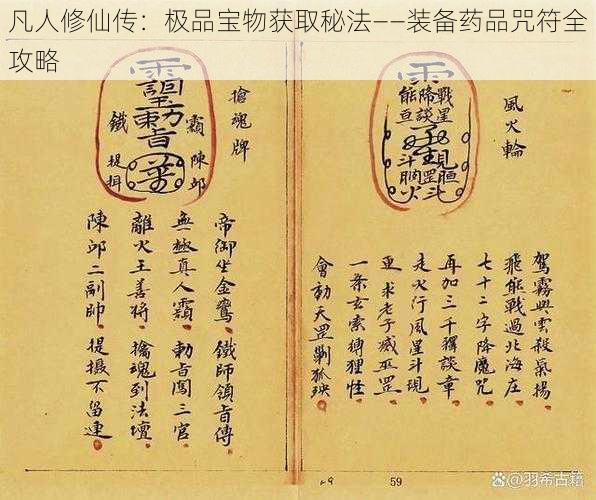 凡人修仙传：极品宝物获取秘法——装备药品咒符全
攻略
風火輪
駕霧興雲殺氣揚
飛熊戰過北海庄
七十二字降魔咒
再加三千獬談章
走火行風星斗現
更求老子威巫罡
一条玄索縛狸怪
會勅天罡剿狐殃
59
搶魂牌
陳邱
鐵
帝御坐金鸞 鐵師領旨傳
無極真人靄 勅旨闖三官
離火王善將 擒魂到法壇
陳邱二副帥 提攝不留連
羽希古籍